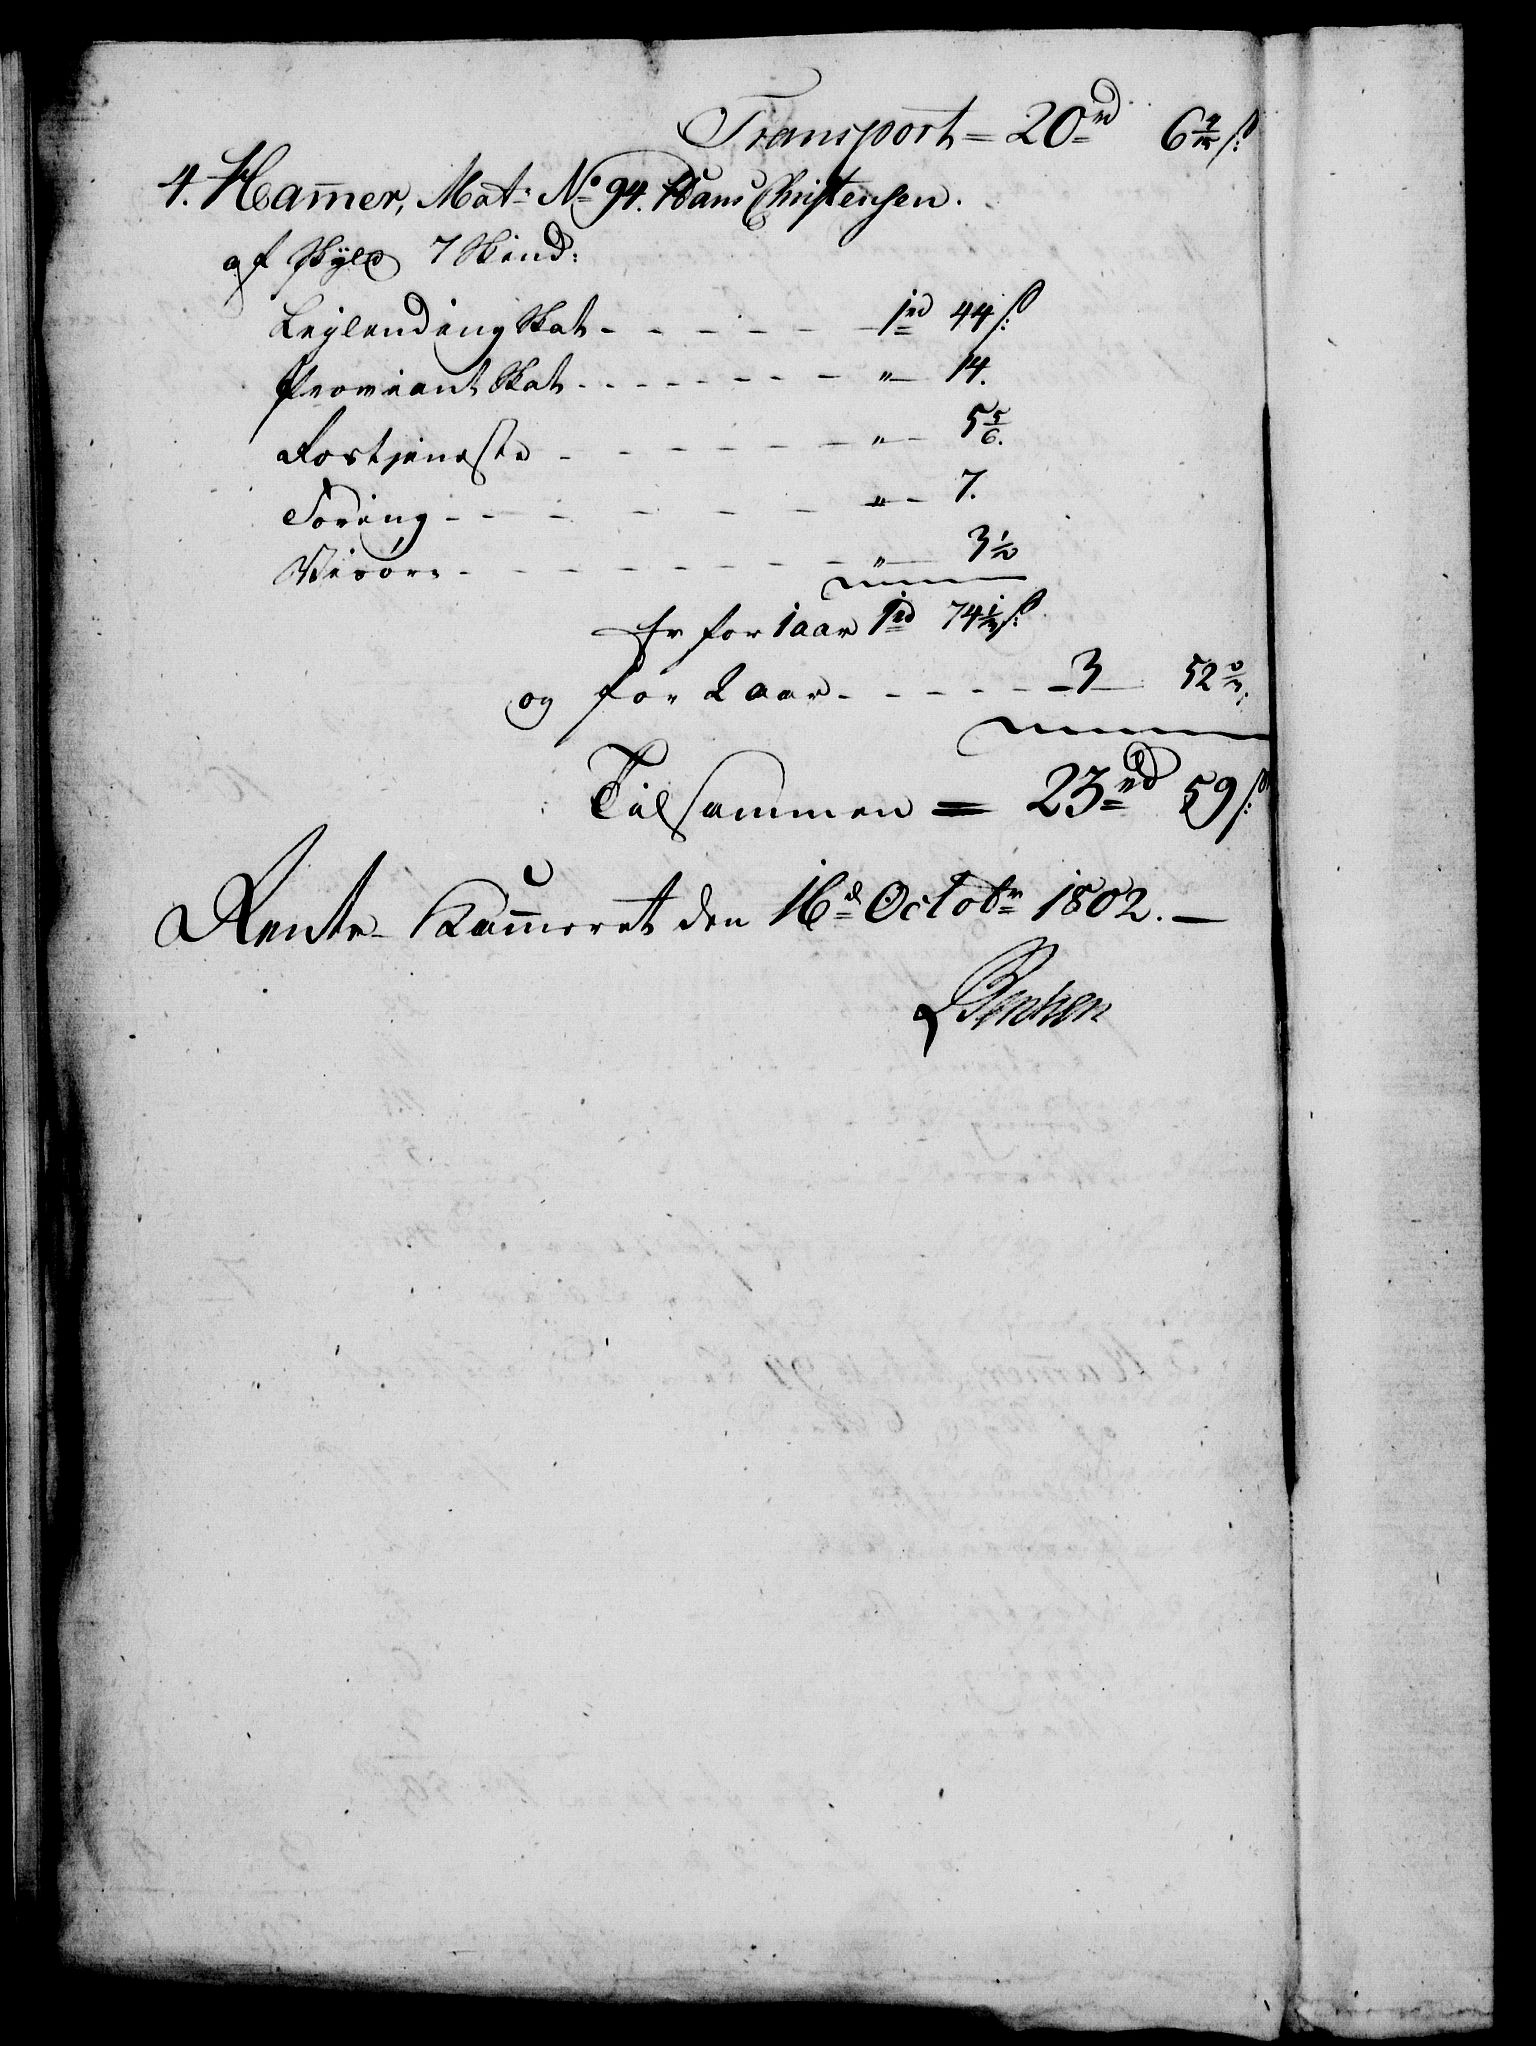 Transport = 20 rd 6 1/3 ß:
4. Ham̄er, Mat: No 94. Hans Christensen.
af Skyld 7 Skind:
Leylending Skat - - - - - 1 rd 44 ß:
Proviant Skat - - - - - - - " 14.
Rostjeneste - - - - - - - " - 5 5/6.
Foring - - - - - - " - 7.
Visøre - - - - - - - - " - 3 1/2
Er for 1 aar 1 rd 74 1/3 ß:
og for 2 aar - - - - - 3 - 52 2/3:
Tilsammen = 23 rd 59 ß:
Rente-Kam̄eret den 16d Octobr 1802. -